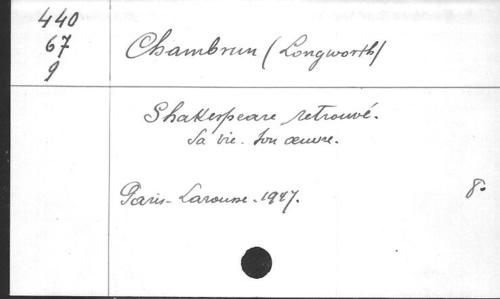 440
67
9
Chambrun (Longworth)
Shakespeare retrouvé.
Sa vie. Son œuvre.
Paris - Larousse. 1947.
8º